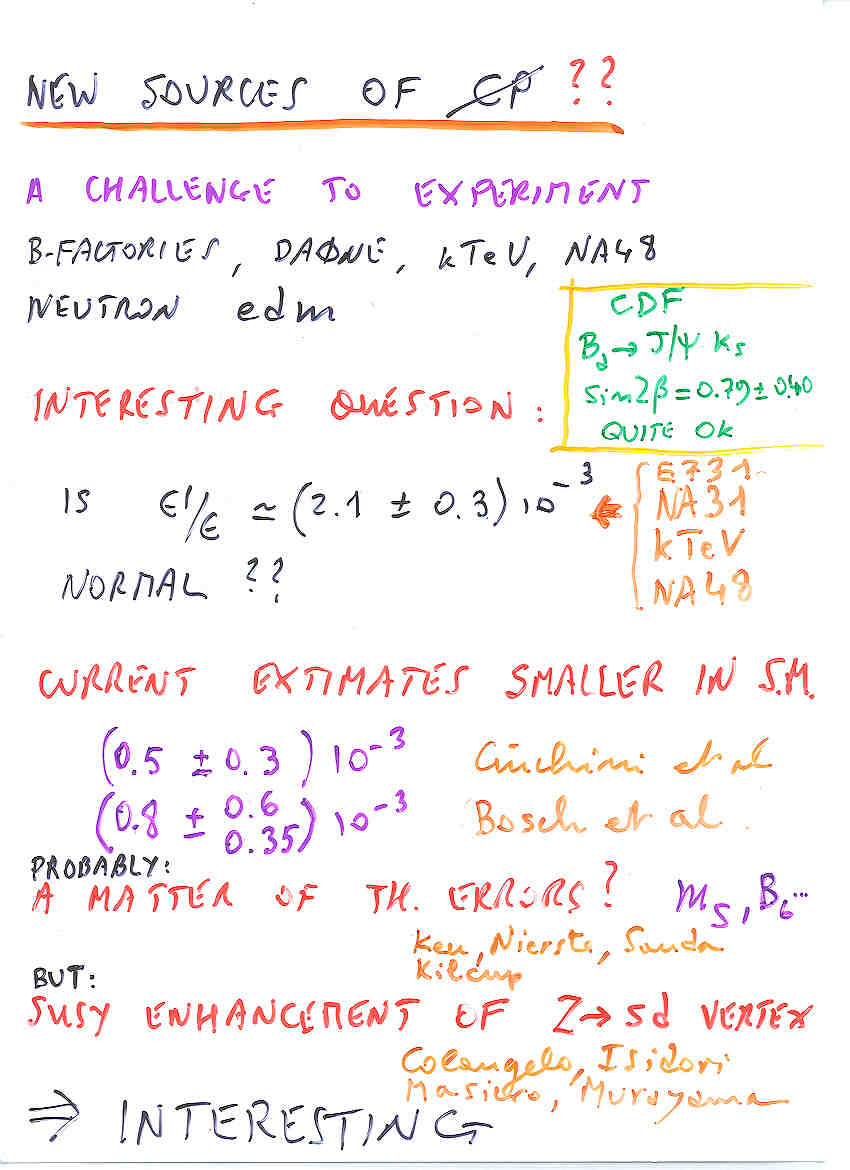 NEW SOURCES OF CP ??
A CHALLENGE TO EXPERIMENT
B-FACTORIES, DAΦNE, kTeV, NA48
NEUTRON edm
CDF
Bd → J/Ψ Ks
sin2β = 0.79 ± 0.40
QUITE OK
INTERESTING QUESTION:
IS ϵ'/ϵ ≃ (2.1 ± 0.3) 10^-3
NORMAL ??
E731
NA31
kTeV
NA48
CURRENT EXTIMATES SMALLER IN S.M.
(0.5 ± 0.3) 10^-3 Ciuchini et al
(0.8 ± 0.6 0.35) 10^-3 Bosch et al.
PROBABLY:
A MATTER OF TH. ERRORS? ms, B6...
Keu, Nierste, Sanda
Kilcup
BUT:
SUSY ENHANCEMENT OF Z→sd VERTEX
Colangelo, Isidori
Masiero, Murayama
⇒ INTERESTING